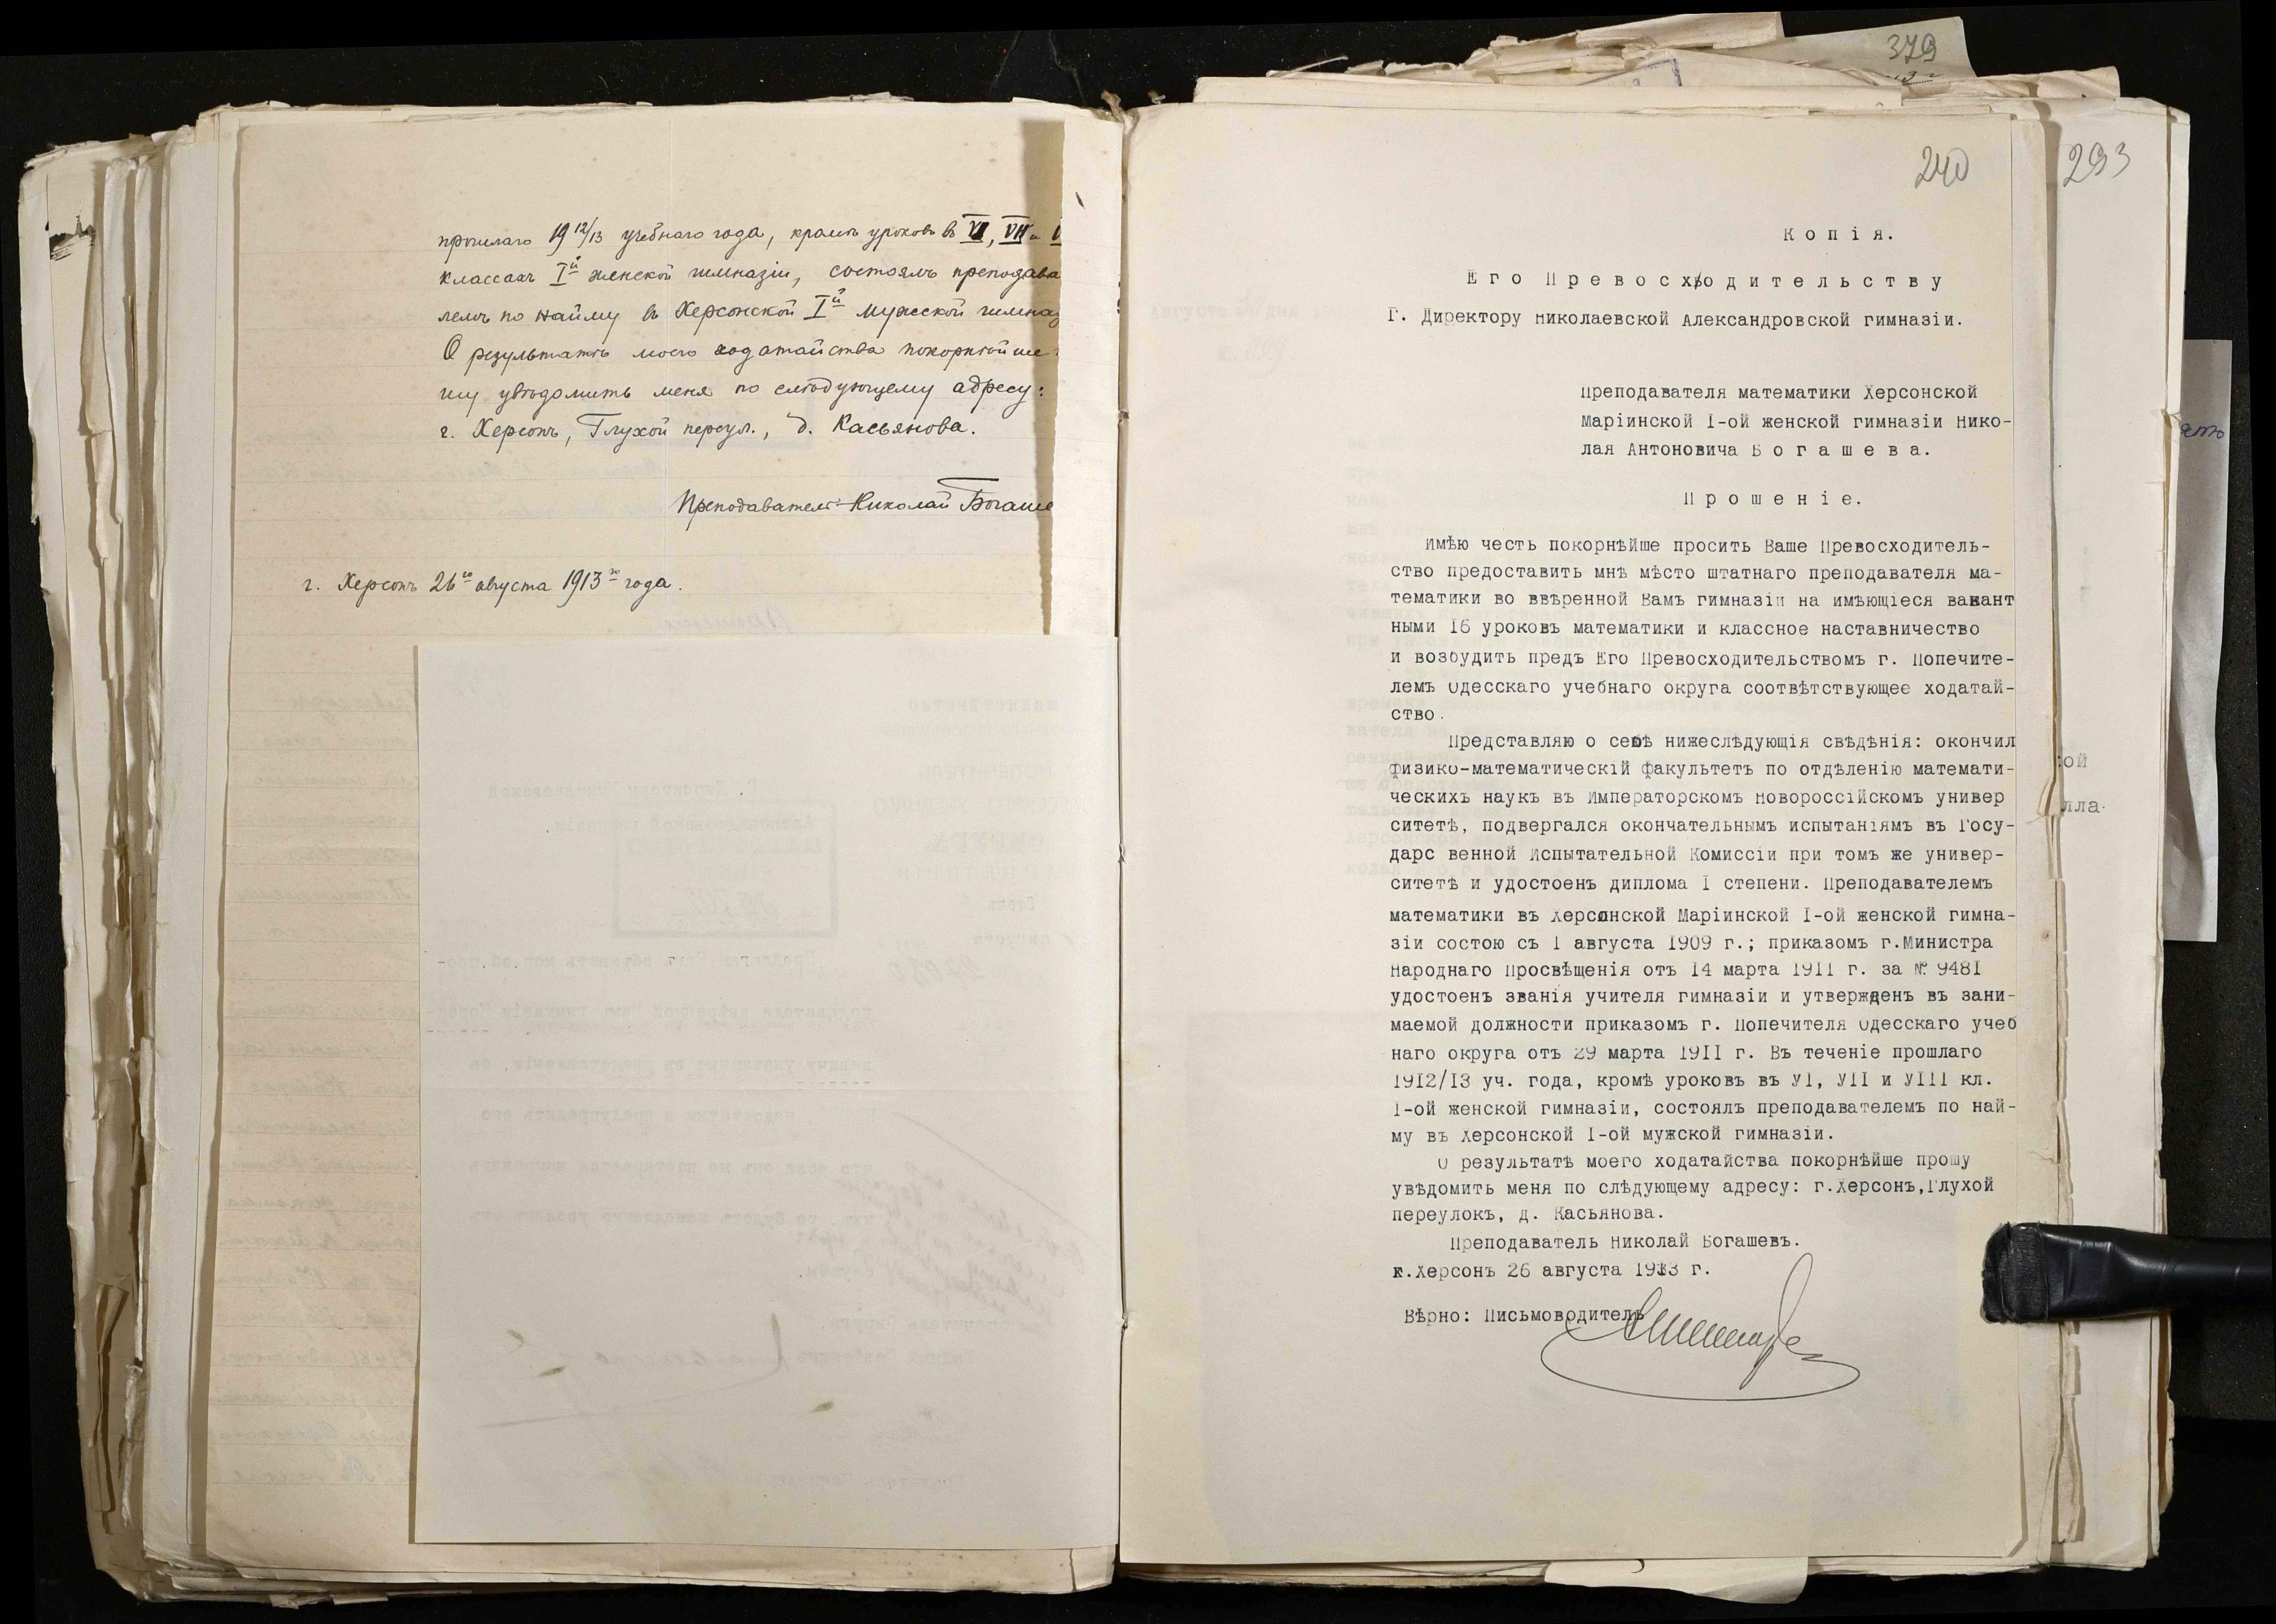 прошлаго 19 12/13 учебнаго года, кромѣ уроковъ въ VI, VII и V
классахъ Iй женской гимназіи, состоялъ преподава
лемъ по найму въ Херсонской Iй мужской гимназ
О результатѣ моего ходатайства покорнѣйше
шу увѣдомить меня по слѣдующему адресу:
г. Херсонъ, Глухой переул., д. Касьянова.
Преподаватель Николай Богаше
г. Херсонъ 26го августа 1913го года.
379
240
293
Копія.
Его Превосходительству
Г. Директору Николаевской Александровской гимназіи.
Преподавателя математики Херсонской
Маріинской I-ой женской гимназіи Нико-
лая Антоновича Богашева.
Прошеніе.
Имѣю честь покорнѣйше просить Ваше Превосходитель-
ство предоставить мнѣ мѣсто штатнаго преподавателя ма-
тематики во ввѣренной Вамъ гимназіи на имѣющіеся вакант
ными 16 уроковъ математики и классное наставничество
и возбудить предъ Его Превосходительствомъ г. Попечите-
лемъ Одесскаго учебнаго округа соотвѣтствующее ходатай-
ство.
Представляю о себѣ нижеслѣдующія свѣдѣнія: окончил
физико-математическій факультетъ по отдѣленію математи-
ческихъ наукъ въ Императорскомъ Новороссійскомъ универ
ситетѣ, подвергался окончательнымъ испытаніямъ въ Госу-
дарс венной Испытательной Комиссіи при томъ же универ-
ситетѣ и удостоенъ диплома I степени. Преподавателемъ
математики въ Херсонской Маріинской I-ой женской гимна-
зіи состою съ 1 августа 1909 г.; приказомъ г.Министра
Народнаго Просвѣщенія отъ 14 марта 1911 г. за № 9481
удостоенъ званія учителя гимназіи и утвержденъ въ зани-
маемой должности приказомъ г. Попечителя Одесскаго учеб
наго округа отъ 29 марта 1911 г. Въ теченіе прошлаго
1912/13 уч. года, кромѣ уроковъ въ УI, УII и УIII кл.
I-ой женской гимназіи, состоялъ преподавателемъ по най-
му въ Херсонской I-ой мужской гимназіи.
О результатѣ моего ходатайства покорнѣйше прошу
увѣдомить меня по слѣдующему адресу: г.Херсонъ,Глухой
переулокъ, д. Касьянова.
Преподаватель Николай Богашевъ.
г.Херсонъ 26 августа 1913 г.
Вѣрно: Письмоводитель
ой
лла